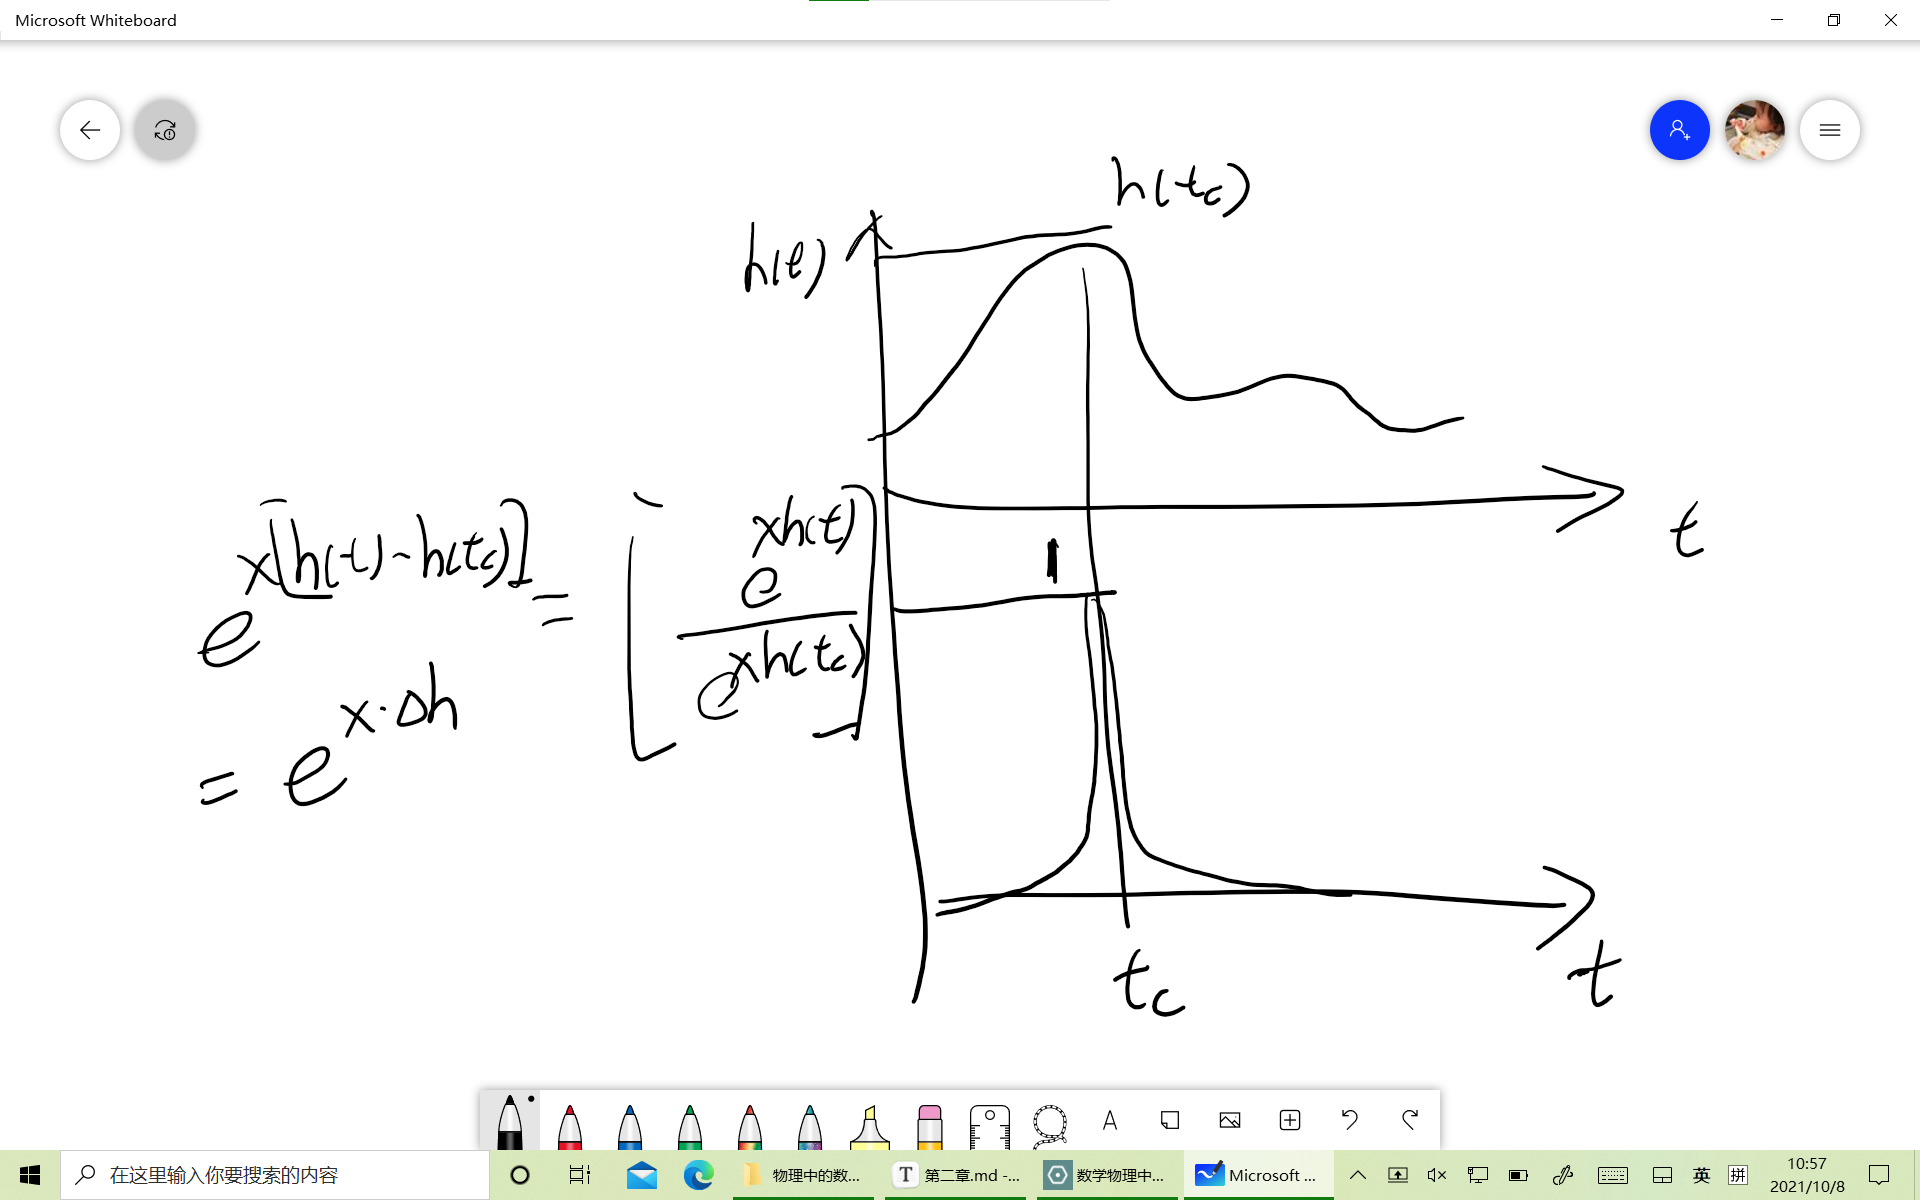 Microsoft Whiteboard
h(t_c)
h(t)
t
e^{x[h(t)-h(t_c)]} = [e^{xh(t)} / e^{xh(t_c)}]
1
= e^{x·Δh}
t_c
t
A
在这里输入你要搜索的内容
物理中的数...
T 第二章.md -...
数学物理中...
Microsoft ...
英
拼
10:57
2021/10/8